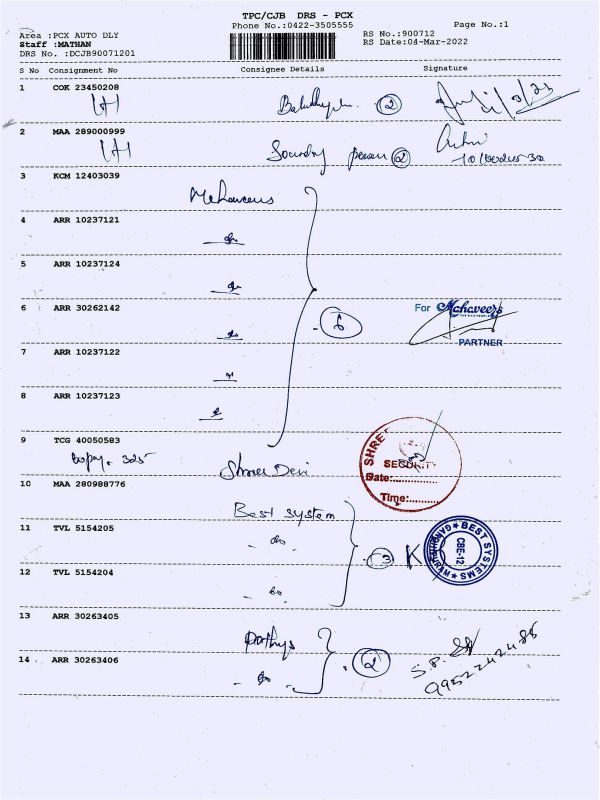 TPC/CJB DRS - PCX
Phone No.:0422-3505555
Page No.:1
Area :PCX AUTO DLY
Staff :MATHAN
DRS No. :DCJB90071201
RS No.:900712
RS Date:04-Mar-2022
S No Consignment No Consignee Details Signature
1 COK 23450208
2
2 MAA 289000999
2
3 KCM 12403039
4 ARR 10237121
5 ARR 10237124
6 ARR 30262142
6
For Mahaveers
PARTNER
7 ARR 10237122
8 ARR 10237123
9 TCG 40050583
Topay. 325
Shree Devi
SHREE
SECURITY
Date:..............
Time:..........
10 MAA 280988776
Best system
11 TVL 5154205
do
3
BEST SYSTEMS
CBE-12
12 TVL 5154204
do
13 ARR 30263405
14 ARR 30263406
do
2
9952242485